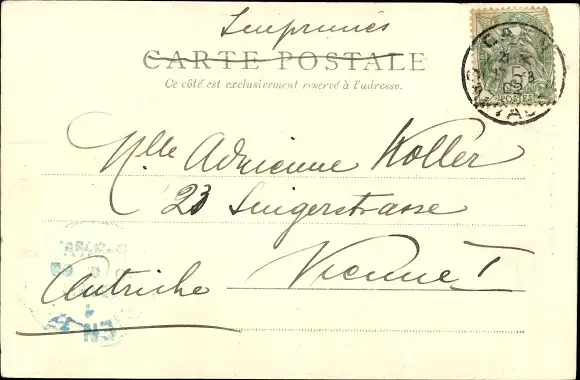 Imprimés
CARTE POSTALE
Ce côté est exclusivement reservé à l'adresse.
5
POSTES
Mlle Adrienne Koller
23 Singerstrasse
Vienne I
Autriche